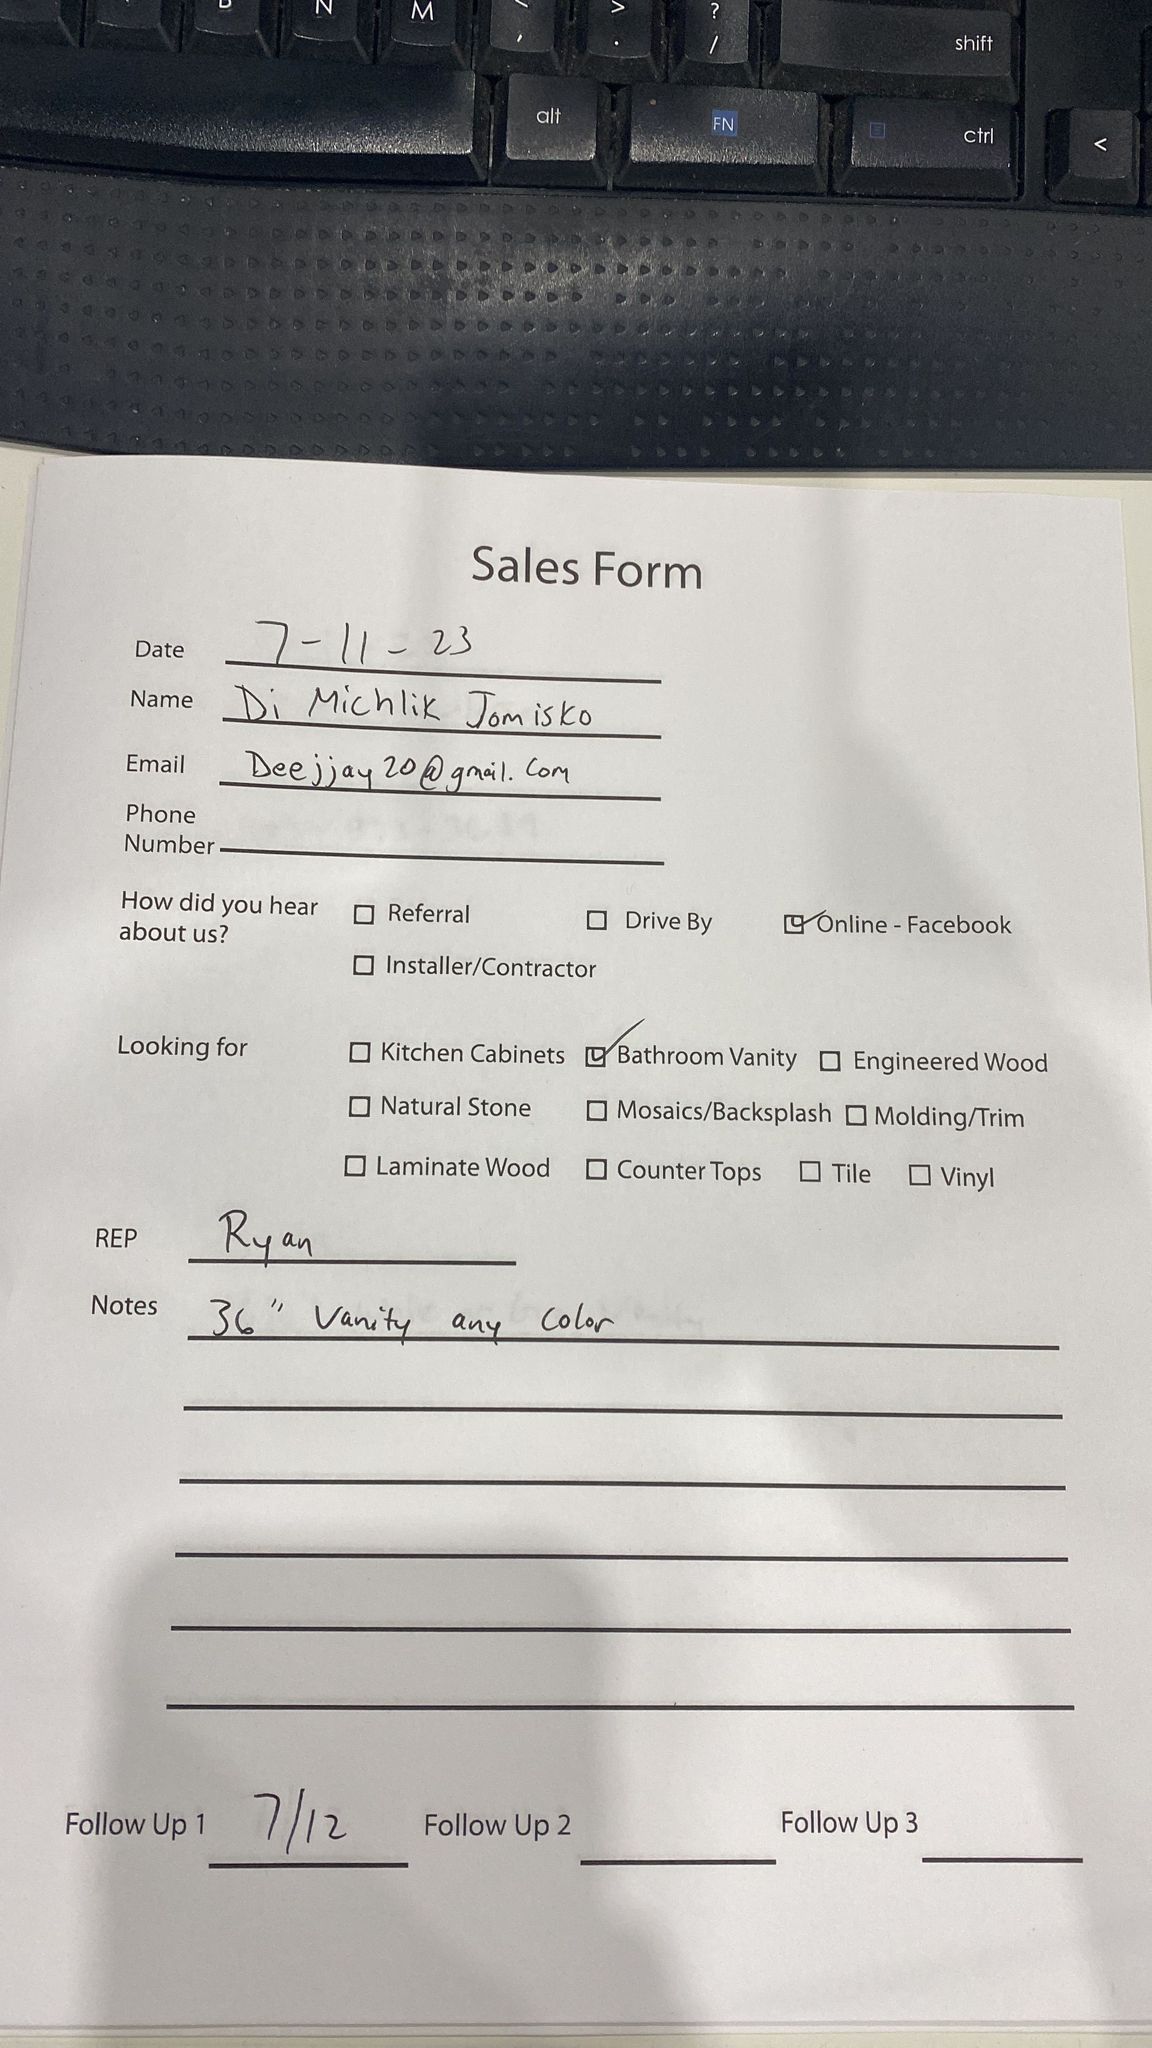 N M < , > . ? / shift
alt FN ctrl <
Sales Form
Date 7-11-23
Name Di Michlik Jomisko
Email Deejjay20@gmail.com
Phone
Number
How did you hear
about us?
☐ Referral ☐ Drive By ☑ Online - Facebook
☐ Installer/Contractor
Looking for ☐ Kitchen Cabinets ☑ Bathroom Vanity ☐ Engineered Wood
☐ Natural Stone ☐ Mosaics/Backsplash ☐ Molding/Trim
☐ Laminate Wood ☐ Counter Tops ☐ Tile ☐ Vinyl
REP Ryan
Notes 36" Vanity any color
Follow Up 1 7/12 Follow Up 2 Follow Up 3